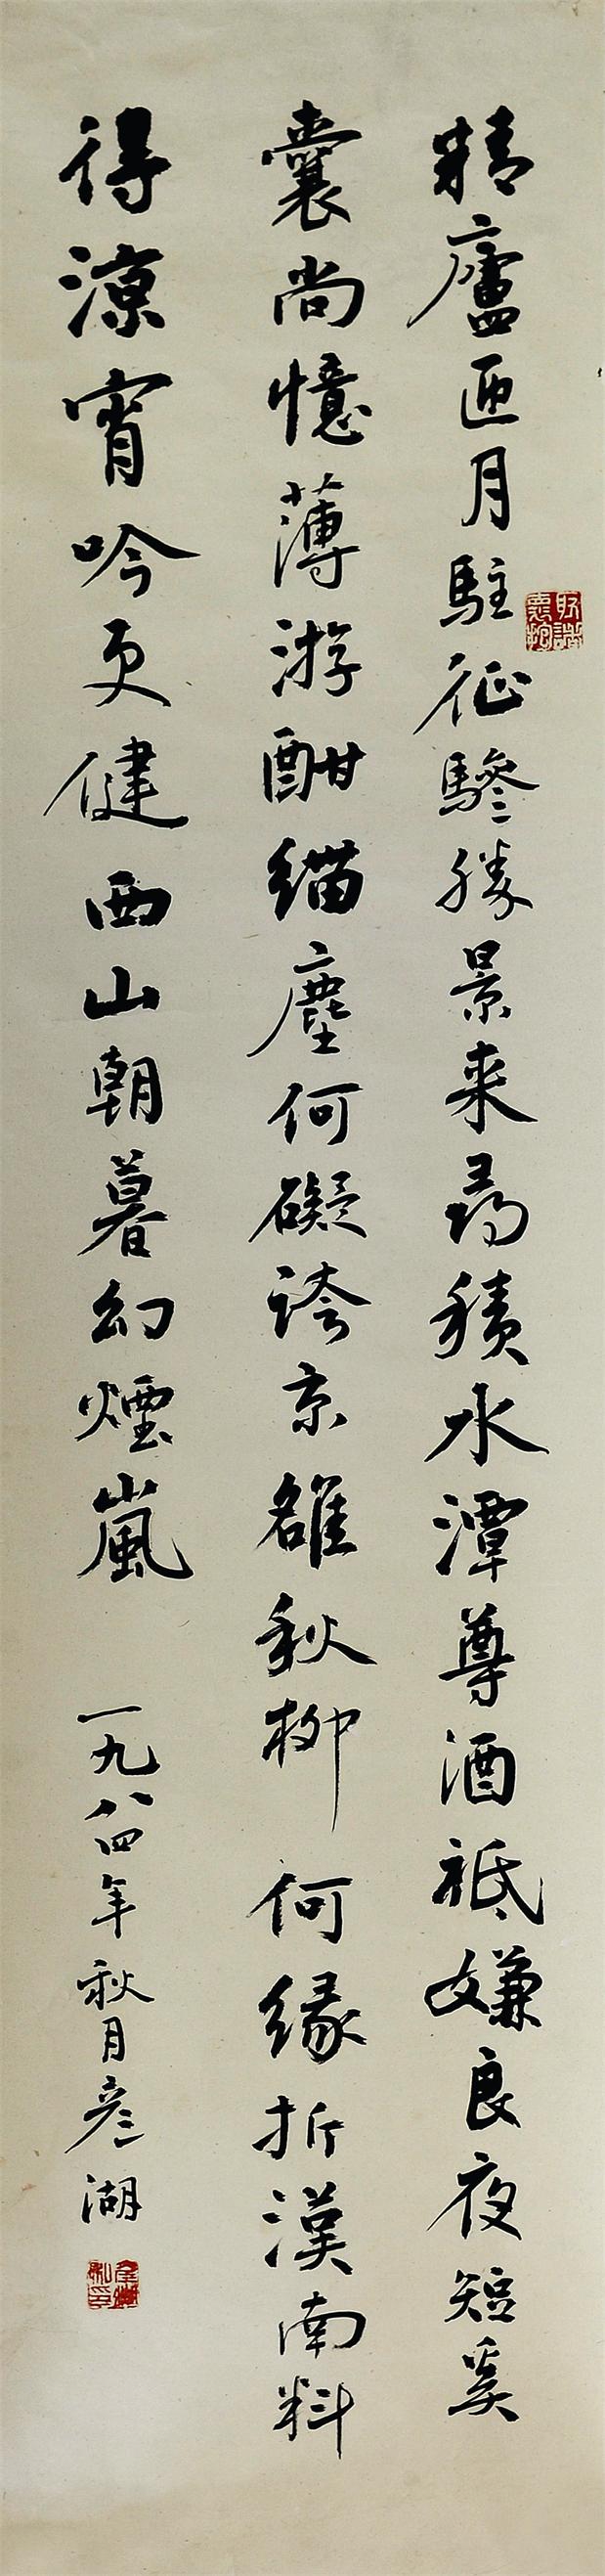 精廬匝月駐征驂勝景来尋積水潭尊酒祗嫌良夜短奚
囊尚憶薄游酣緇塵何礙誇京雒秋柳何緣折漢南料
得涼宵吟更健西山朝暮幻煙嵐
一九八四年秋月彦湖